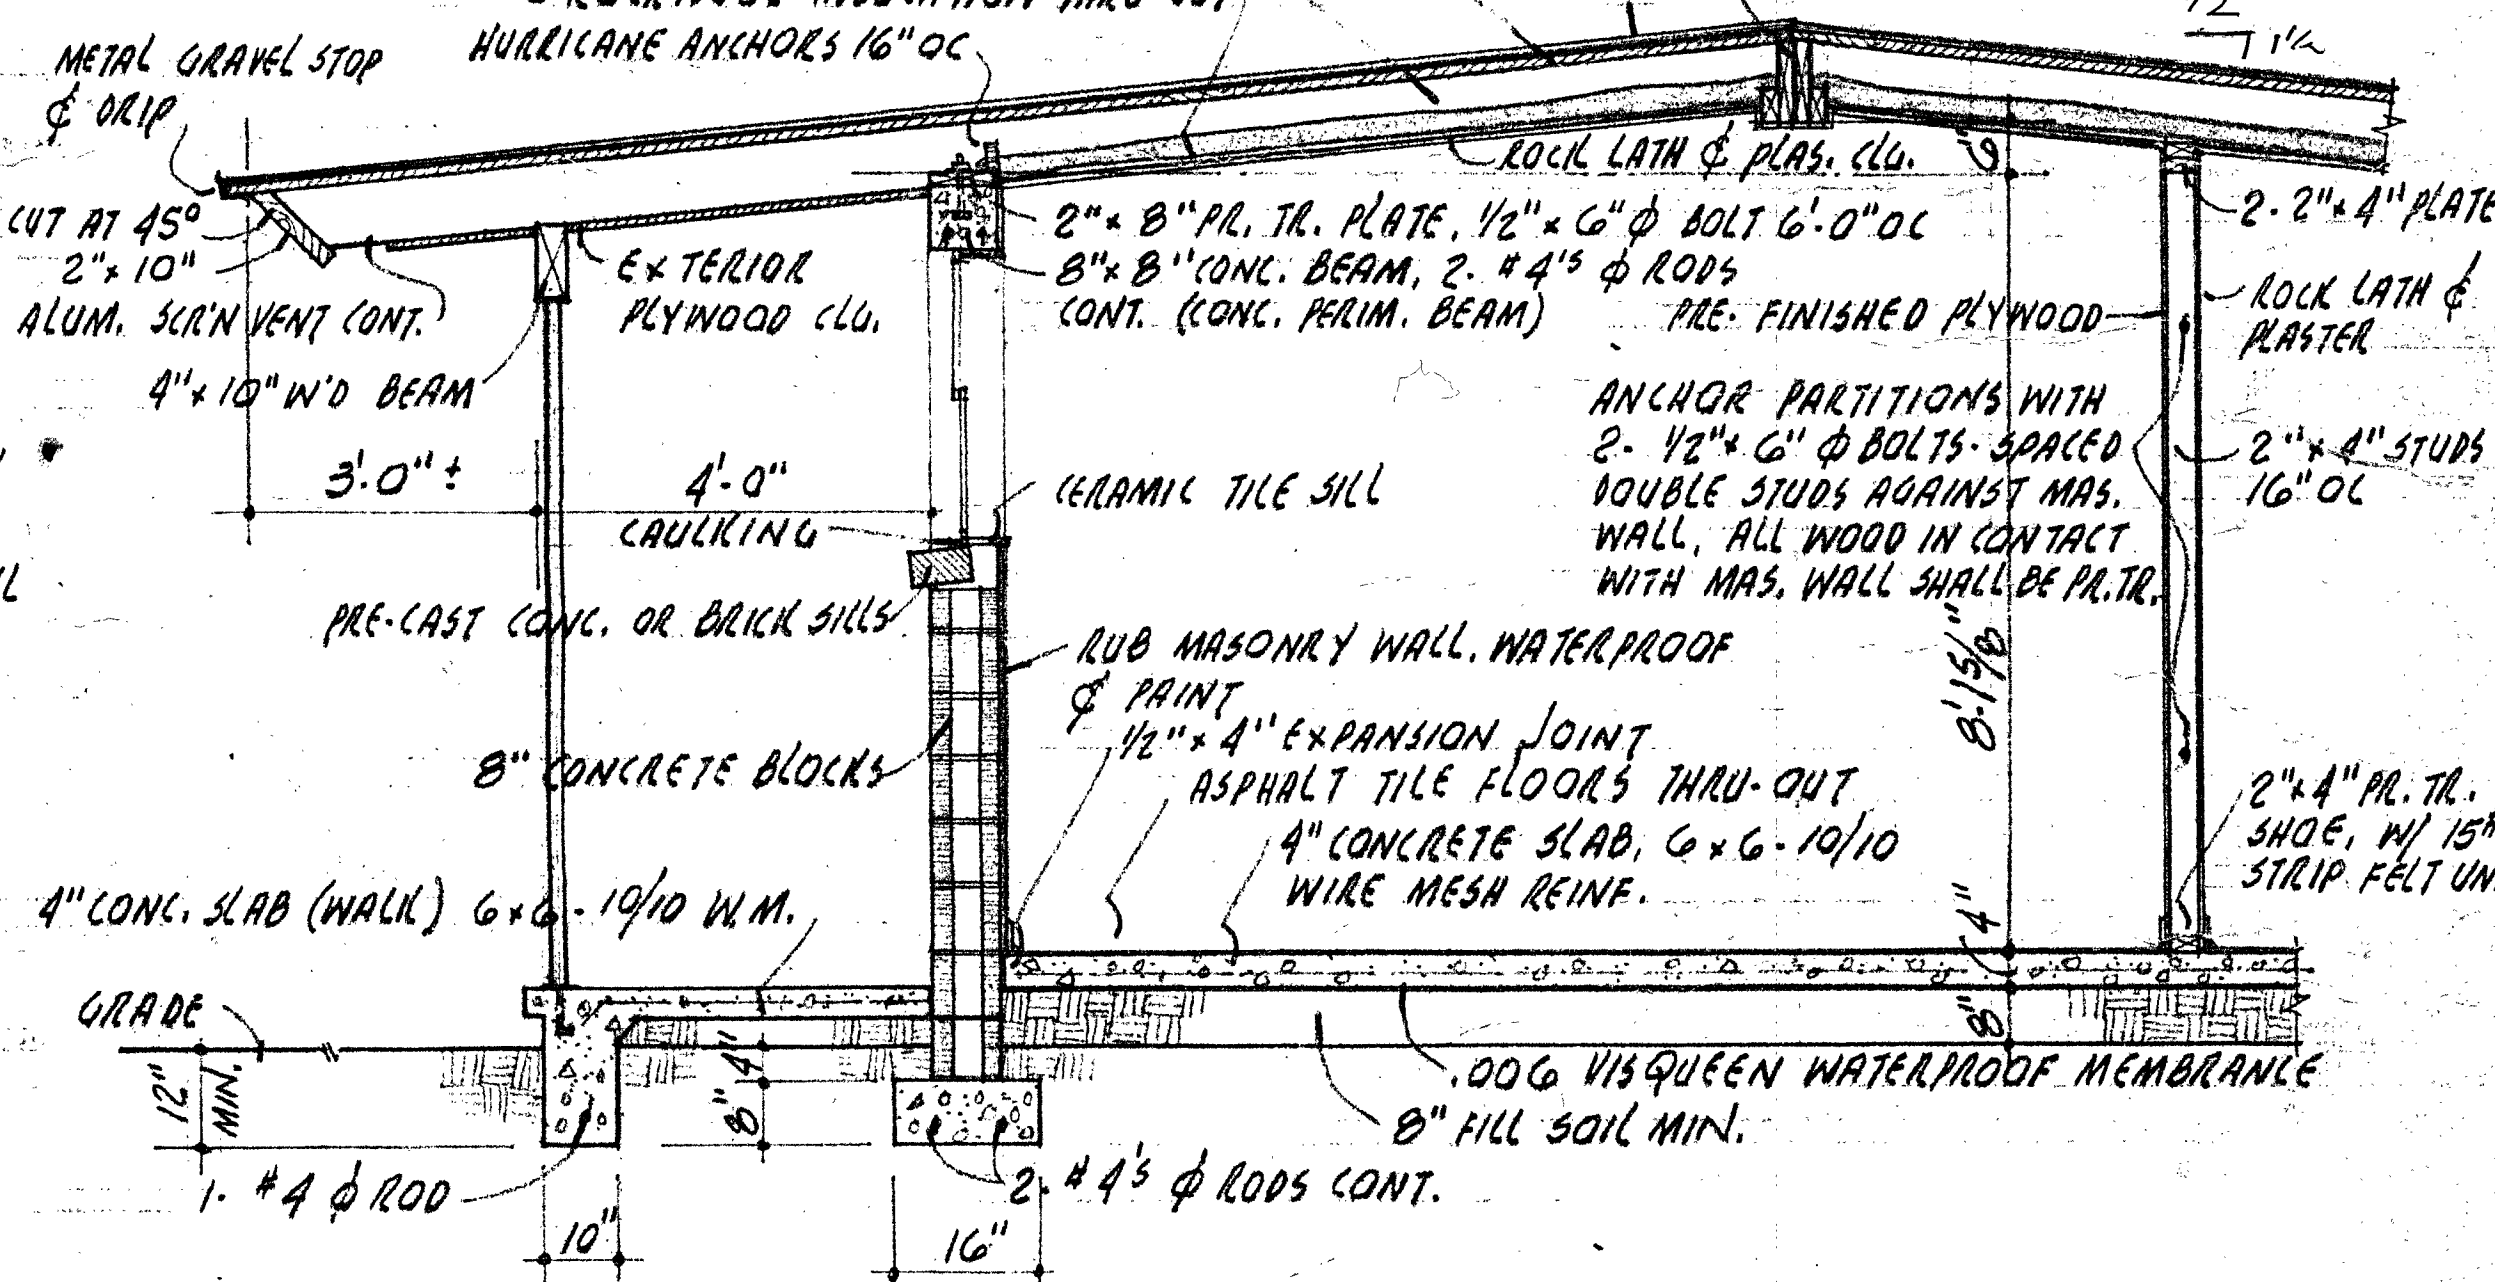 HURRICANE ANCHORS 16" OC
METAL GRAVEL STOP
& DRIP
12
1 1/2
CUT AT 45°
2"x 10"
ALUM. SCR'N VENT CONT.
4"x 10" W'D BEAM
EXTERIOR
PLYWOOD CLG.
ROCK LATH & PLAS. CLG.
6"
2"x 8" PR. TR. PLATE, 1/2"x 6" φ BOLT 6'-0" OC
8"x 8" CONC. BEAM, 2- #4'S φ RODS
CONT. (CONC. PERIM. BEAM)
2- 2"x 4" PLATE
ROCK LATH &
PLASTER
PRE-FINISHED PLYWOOD
ANCHOR PARTITIONS WITH
2- 1/2"x 6" φ BOLTS-SPACED
DOUBLE STUDS AGAINST MAS.
WALL, ALL WOOD IN CONTACT
WITH MAS. WALL SHALL BE PR.TR.
2"x 4" STUDS
16" OC
3'-0" ±
4'-0"
CAULKING
CERAMIC TILE SILL
PRE-CAST CONC. OR BRICK SILLS
RUB MASONRY WALL. WATERPROOF
& PAINT
8'-1 5/8"
1/2"x 4" EXPANSION JOINT
8" CONCRETE BLOCKS
ASPHALT TILE FLOORS THRU-OUT
4" CONCRETE SLAB, 6x6-10/10
WIRE MESH REINF.
2"x4" PR. TR.
SHOE, W/ 15#
STRIP FELT UN
4" CONC. SLAB (WALK) 6x6-10/10 W.M.
4"
GRADE
12"
MIN.
4"
8"
8"
.006 VISQUEEN WATERPROOF MEMBRANCE
8" FILL SOIL MIN.
1- #4 φ ROD
2- #4'S φ RODS CONT.
10"
16"